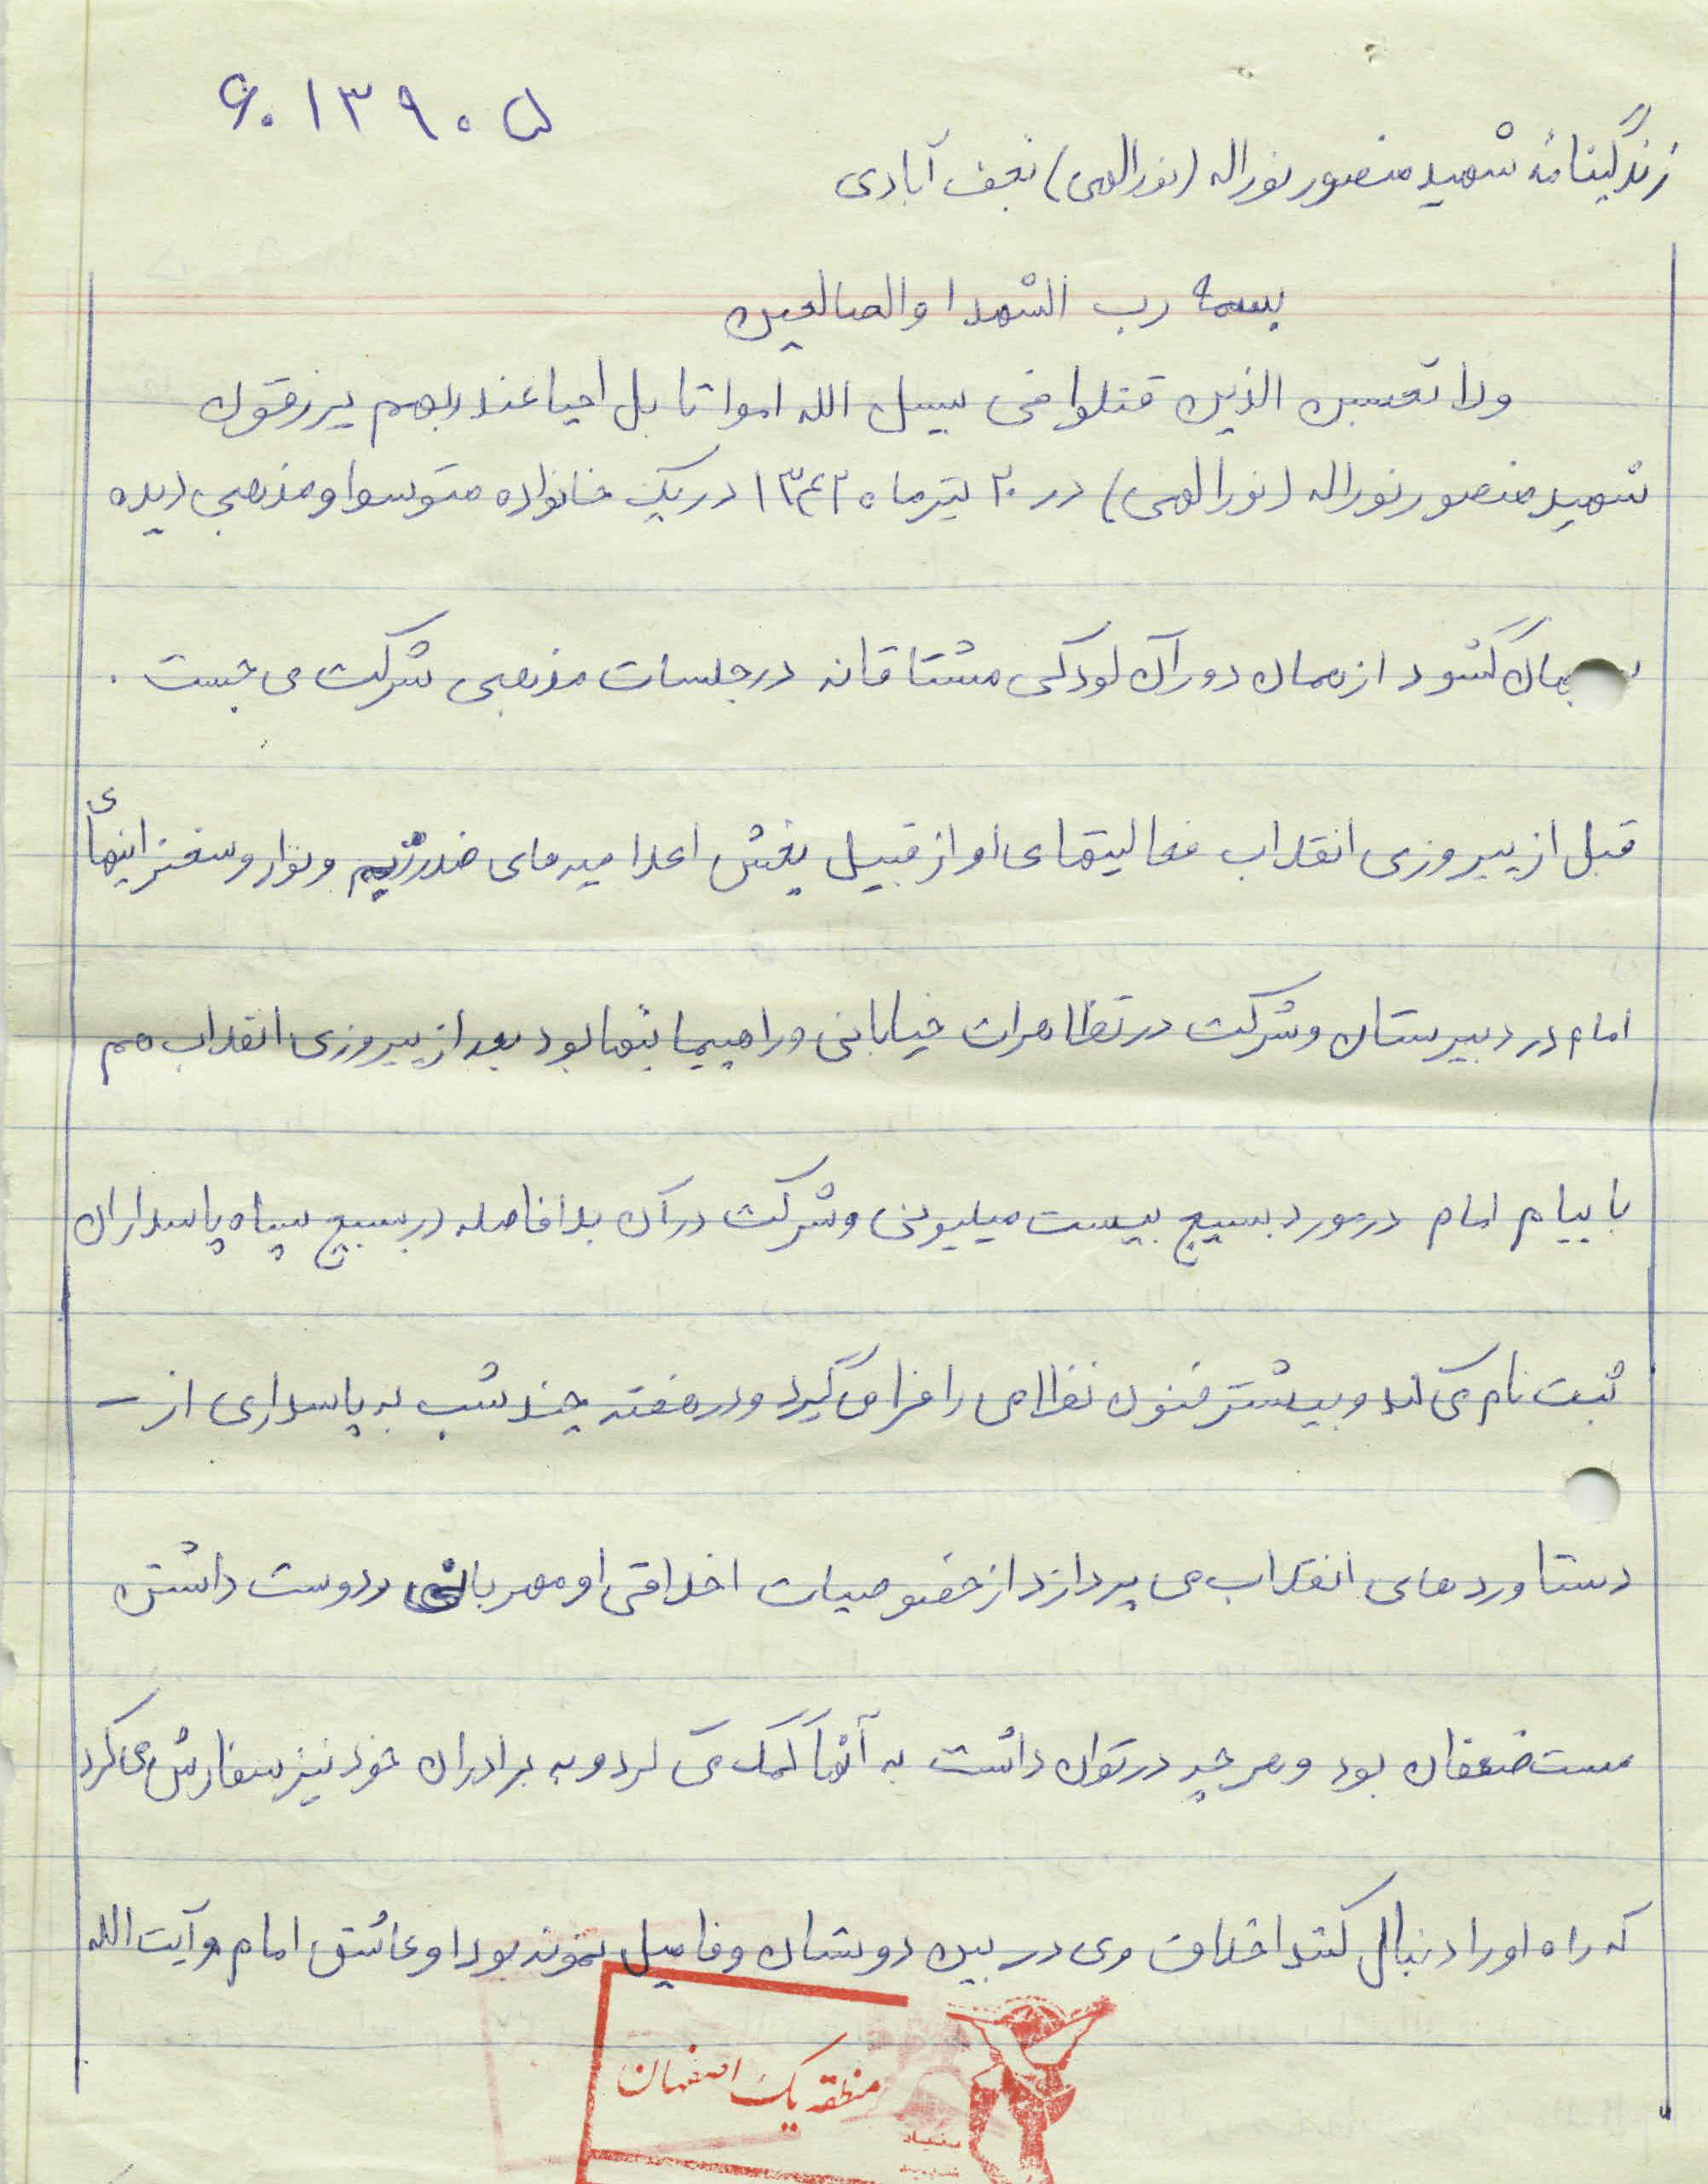 ۶۰۱۳۹۰۵
زندگینامه شهید منصور نوراله (نورالهی) نجف آبادی
بسمه رب الشهدا والصالحین
ولا تحسبن الذین قتلوا فی سبیل الله امواتا بل احیا عند ربهم یرزقون
شهید منصور نوراله (نورالهی) در ۲۰ تیرماه ۱۳۴۲ در یک خانواده متوسط و مذهبی دیده
جهان گشود از همان دوران کودکی مشتاقانه در جلسات مذهبی شرکت می جست .
قبل از پیروزی انقلاب فعالیتهای او از قبیل پخش اعلامیه های ضد رژیم و نوار و سخنرانیهای
امام در دبیرستان و شرکت در تظاهرات خیابانی و راهپیمائیها بود بعد از پیروزی انقلاب هم
با پیام امام در مورد بسیج بیست میلیونی و شرکت در آن بلافاصله در بسیج سپاه پاسداران
ثبت نام می کند و بیشتر فنون نظامی را فرا می گیرد و در هفته چند شب به پاسداری از -
دستاوردهای انقلاب می پردازد از خصوصیات اخلاقی او مهربانی و دوست داشتن
مستضعفان بود و هر چه در توان داشت به آنها کمک می کرد و به برادران خود نیز سفارش می کرد
که راه او را دنبال کنند اخلاق وی در بین دوستان و فامیل نمونه بود او عاشق امام و آیت الله
منطقه یک اصفهان
بنیاد
شهید